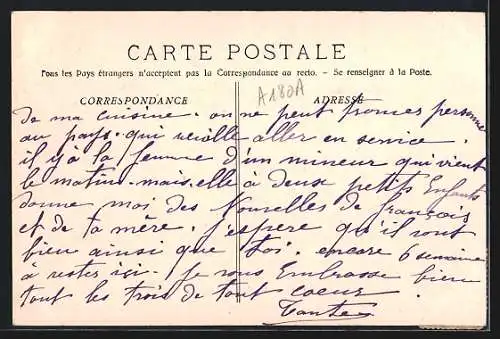 CARTE POSTALE
Tous les Pays étrangers n'acceptent pas la Correspondance au recto. - Se renseigner à la Poste.
CORRESPONDANCE
ADRESSE
A180A
de ma cuisine. on ne peut trouver personne
au pays. qui veuille aller en service.
il y a la femme d'un mineur qui vient
le matin. mais. elle à deux petits Enfants
donne moi des Nouvelles de françois
et de ta mère. j'espère qu'il vont
bien ainsi que toi. encore 6 semaine
a rester ici. je vous Embrasse bien
tout les trois de tout coeur